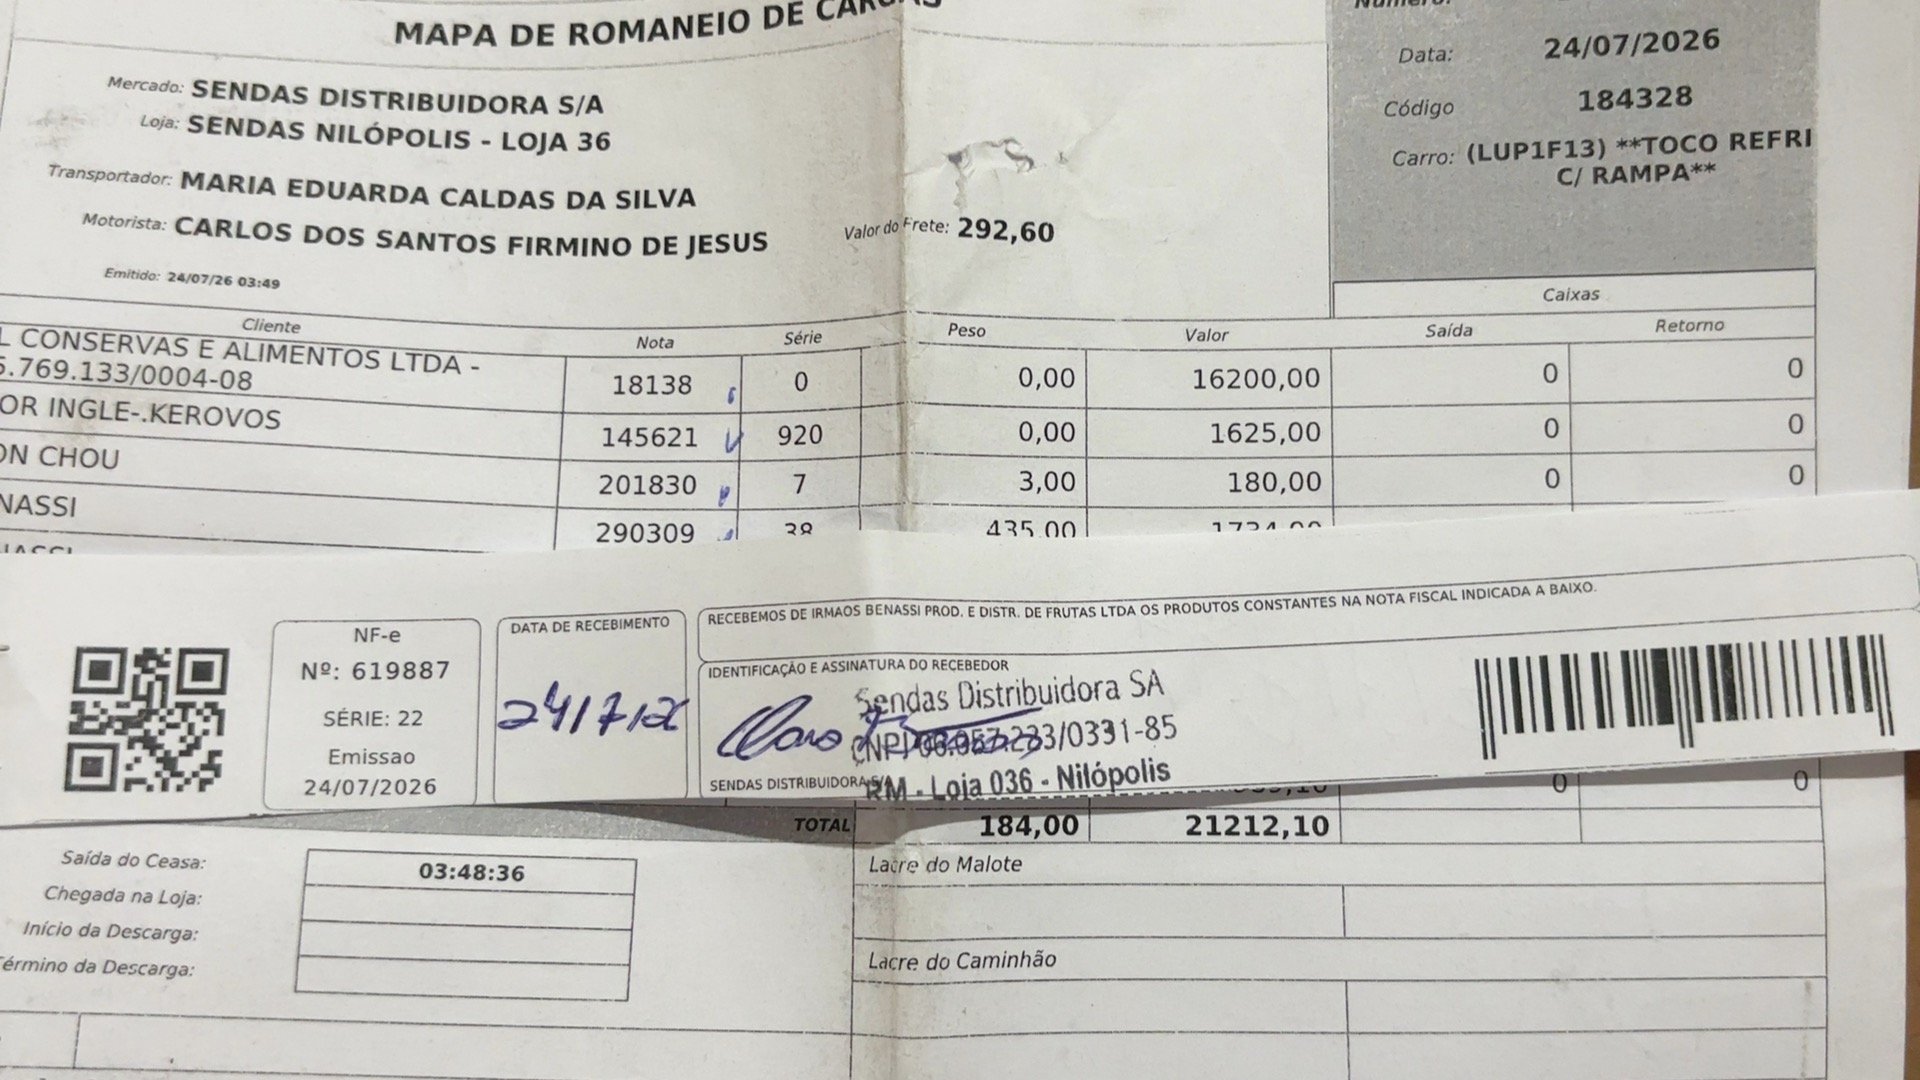 MAPA DE ROMANEIO DE CARGAS
Número:
Data: 24/07/2026
Código 184328
Carro: (LUP1F13) **TOCO REFRI
C/ RAMPA**
Mercado: SENDAS DISTRIBUIDORA S/A
Loja: SENDAS NILÓPOLIS - LOJA 36
Transportador: MARIA EDUARDA CALDAS DA SILVA
Motorista: CARLOS DOS SANTOS FIRMINO DE JESUS
Valor do Frete: 292,60
Emitido: 24/07/26 03:49
Caixas
Cliente Nota Série Peso Valor Saída Retorno
L CONSERVAS E ALIMENTOS LTDA -
5.769.133/0004-08 18138 0 0,00 16200,00 0 0
OR INGLE-.KEROVOS 145621 920 0,00 1625,00 0 0
ON CHOU 201830 7 3,00 180,00 0 0
NASSI 290309 38 435,00 1734,00
NF-e
Nº: 619887
SÉRIE: 22
Emissao
24/07/2026
DATA DE RECEBIMENTO
24/7/26
RECEBEMOS DE IRMAOS BENASSI PROD. E DISTR. DE FRUTAS LTDA OS PRODUTOS CONSTANTES NA NOTA FISCAL INDICADA A BAIXO.
IDENTIFICAÇÃO E ASSINATURA DO RECEBEDOR
Sendas Distribuidora SA
CNPJ 233/0331-85
RM - Loja 036 - Nilópolis
SENDAS DISTRIBUIDORA S/A
0 0
TOTAL 184,00 21212,10
Saída do Ceasa: 03:48:36
Chegada na Loja:
Início da Descarga:
Término da Descarga:
Lacre do Malote
Lacre do Caminhão